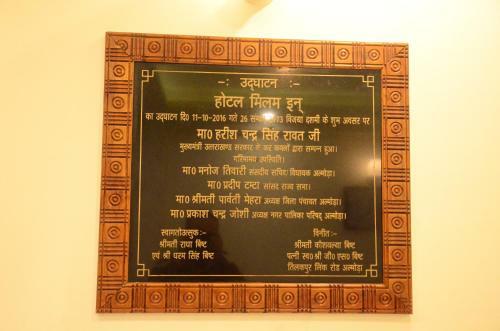 -: उद्घाटन :-
होटल मिलम इन्
का उद्घाटन दि0 11-10-2016 गते 26 विजया दशमी के शुभ अवसर पर
मा0 हरीश चन्द्र सिंह रावत जी
मुख्यमंत्री उत्तराखण्ड सरकार के कर कमलों द्वारा सम्पन्न हुआ।
गरिमामय उपस्थिति।
मा0 मनोज तिवारी संसदीय सचिव विधायक अल्मोड़ा।
मा0 प्रदीप टम्टा सांसद राज्य सभा।
मा0 श्रीमती पार्वती मेहरा अध्यक्ष जिला पंचायत अल्मोड़ा।
मा0 प्रकाश चन्द्र जोशी अध्यक्ष नगर पालिका परिषद् अल्मोड़ा।
स्वागतोउत्सुक :-
श्रीमती राधा बिष्ट
एवं श्री धरम सिंह बिष्ट
विनीत :-
श्रीमती कौशल्या बिष्ट
पत्नी स्व0 श्री जी0 एस0 बिष्ट
तिलकपुर लिंक रोड अल्मोड़ा